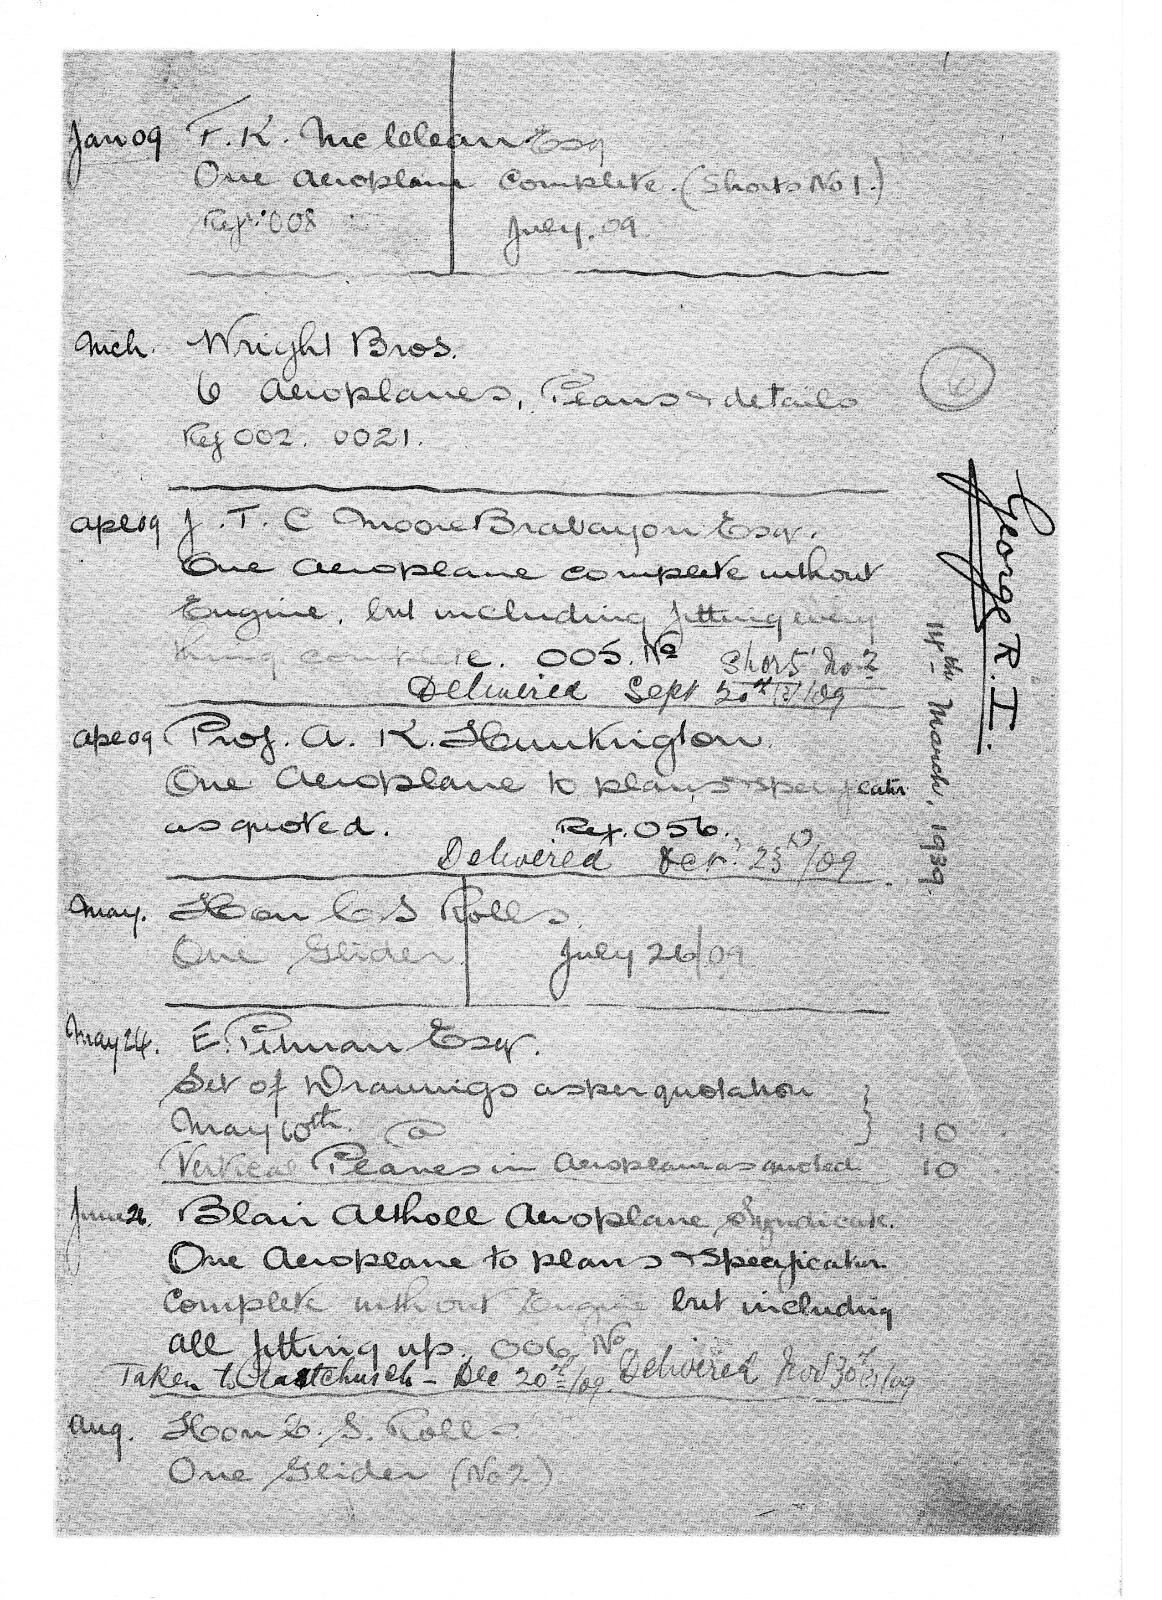 Jan 09 F. K. McClean Esq
One Aeroplane complete. (Shorts No 1.)
Ref. 008 July. 09
Mch. Wright Bros.
6 Aeroplanes, Plans & details
Ref 002. 0021.
6
Apl 09 J. T. C Moore Brabazon Esq.
One Aeroplane complete without
Engine, but including fitting every
thing complete. 005. No Short No 2
Delivered Sept 20th /09
Apl 09 Prof. A. K. Huntington
One Aeroplane to plans & specification
as quoted. Ref. 056.
Delivered 23 /09
May. Hon C S Rolls
One Glider. July 26/09
May 24. E. Pitman Esq.
Set of Drawings as per quotation
May 10th. @ 10
Vertical Planes in Aeroplane as quoted 10
June 26. Blair Atholl Aeroplane Syndicate.
One Aeroplane to plans & Specification
Complete without Engine but including
all fitting up. 006 No Delivered Nov 30th /09
Taken to Eastchurch - Dec 20th/09
Aug. Hon C. S. Rolls
One Glider (No 2)
George R. I.
14th March, 1939.